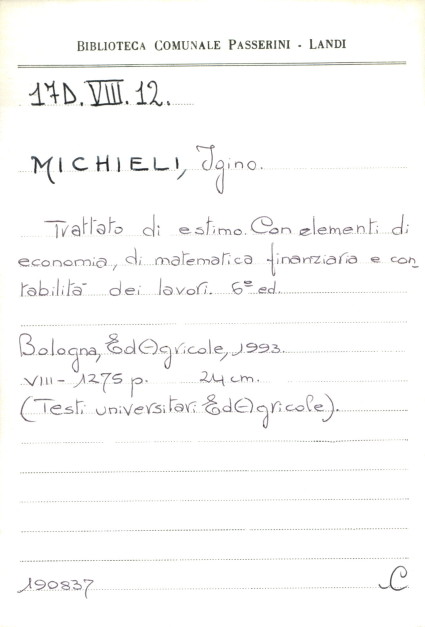 BIBLIOTECA COMUNALE PASSERINI - LANDI
17D.VIII.12.
MICHIELI, Igino.
Trattato di estimo. Con elementi di
economia, di matematica finanziaria e con_
tabilità dei lavori. 6ª ed.
Bologna, Ed(-)agricole, 1993.
VIII - 1275 p. 24 cm.
(Testi universitari Ed(-)agricole).
190837 C